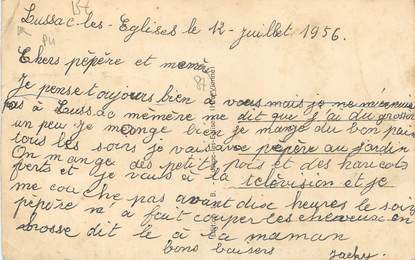 Lussac-les-Eglises le 12-juillet 1956.
Chers pépère et mémère
Je pense toujours bien à vous mais je ne m'ennuie
pas à Lussac mémère me dit que j'ai du grossir
un peu je mange bien je mange du bon pain
tous les soirs je vais avec pépère au jardin
On mange des petits pois et des haricots
verts et je vais à la télévision et je
me couche pas avant disc heures le soir
pépère m'a fait couper les cheveux en
brosse dit le à la maman
bons baisers
Jacky
87